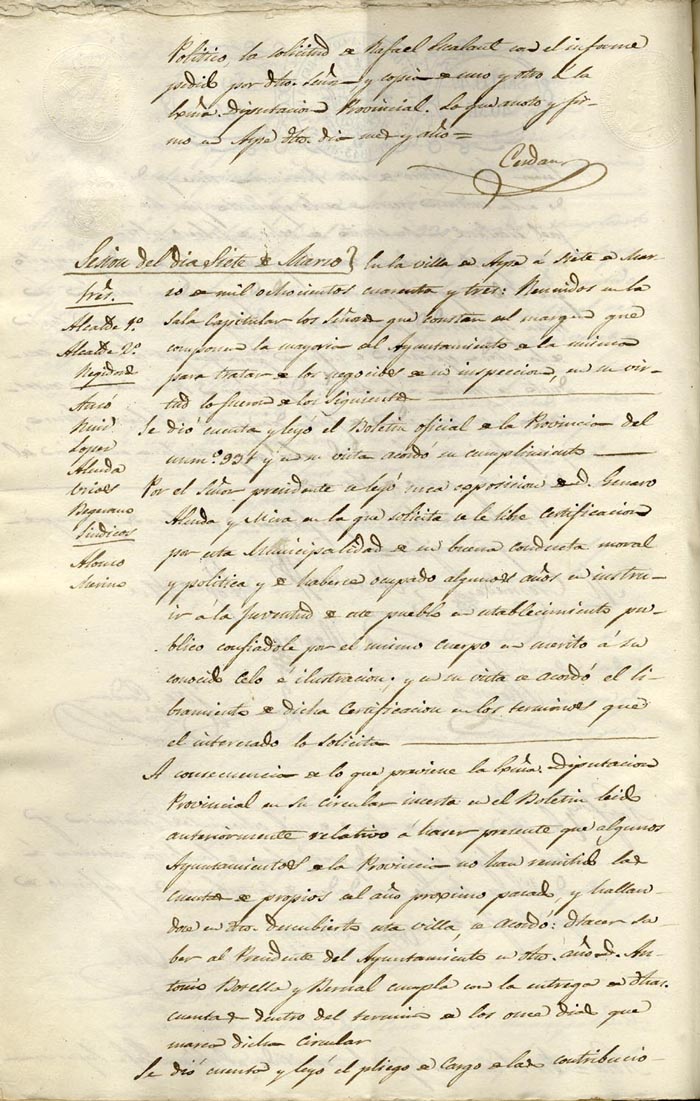 Politico, la solicitud de Rafael con el informe
pedido por dho. Señor y copia de uno y otro á la
Exma. Diputacion Provincial. Lo que anoto y fir-
mo en Aspe dho. dia mes y año=
Cerdan
Sesion del dia Siete de Marzo}
Sres.
Alcalde 1º.
Alcalde 2º.
Regidores
Ruiz
Lopez
Almda
Urios
Sindicos
Alonso
Marino
En la villa de Aspe á Siete de Mar-
zo de mil ochocientos cuarenta y tres: Reunidos en la
Sala Capitular los Señores que constan al margen que
componen la mayoria del Ayuntamiento de la misma
para tratar de los negocios de su inspeccion, en su vir-
tud lo fueron de los siguientes
Se dió cuenta y leyó el Boletin oficial de la Provincia del
num.º 934 y en su vista acordó su cumplimiento
Por el Señor presidente se leyó una exposicion de D. Genaro
Almda y Mira en la que solicita se le libre Certificacion
por esta Municipalidad de su buena conducta moral
y politica y de haberse ocupado algunos años en instru-
ir á la juventud de este pueblo en establecimiento pu-
blico confiadole por el mismo cuerpo en merito á su
conocido Celo é ilustracion; y en su vista se acordó el li-
bramiento de dicha Certificacion en los terminos que
el interesado lo solicita
A consecuencia de lo que previene la Exma. Diputacion
Provincial en su circular inserta en el Boletin leido
anteriormente relativo á hacer presente que algunos
Ayuntamientos de la Provincia no han remitido las
cuentas de propios del año proximo pasado, y hallan-
dose en dho. descubierto esta villa, se acordó: Hacer sa-
ber al Presidente del Ayuntamiento en dho. año D. An-
tonio Botella y Bernal cumpla con la entrega de dhas.
cuentas dentro del termino de los once dias que
marca dicha circular
Se dió cuenta y leyó el pliego de Cargo de las contribucio-